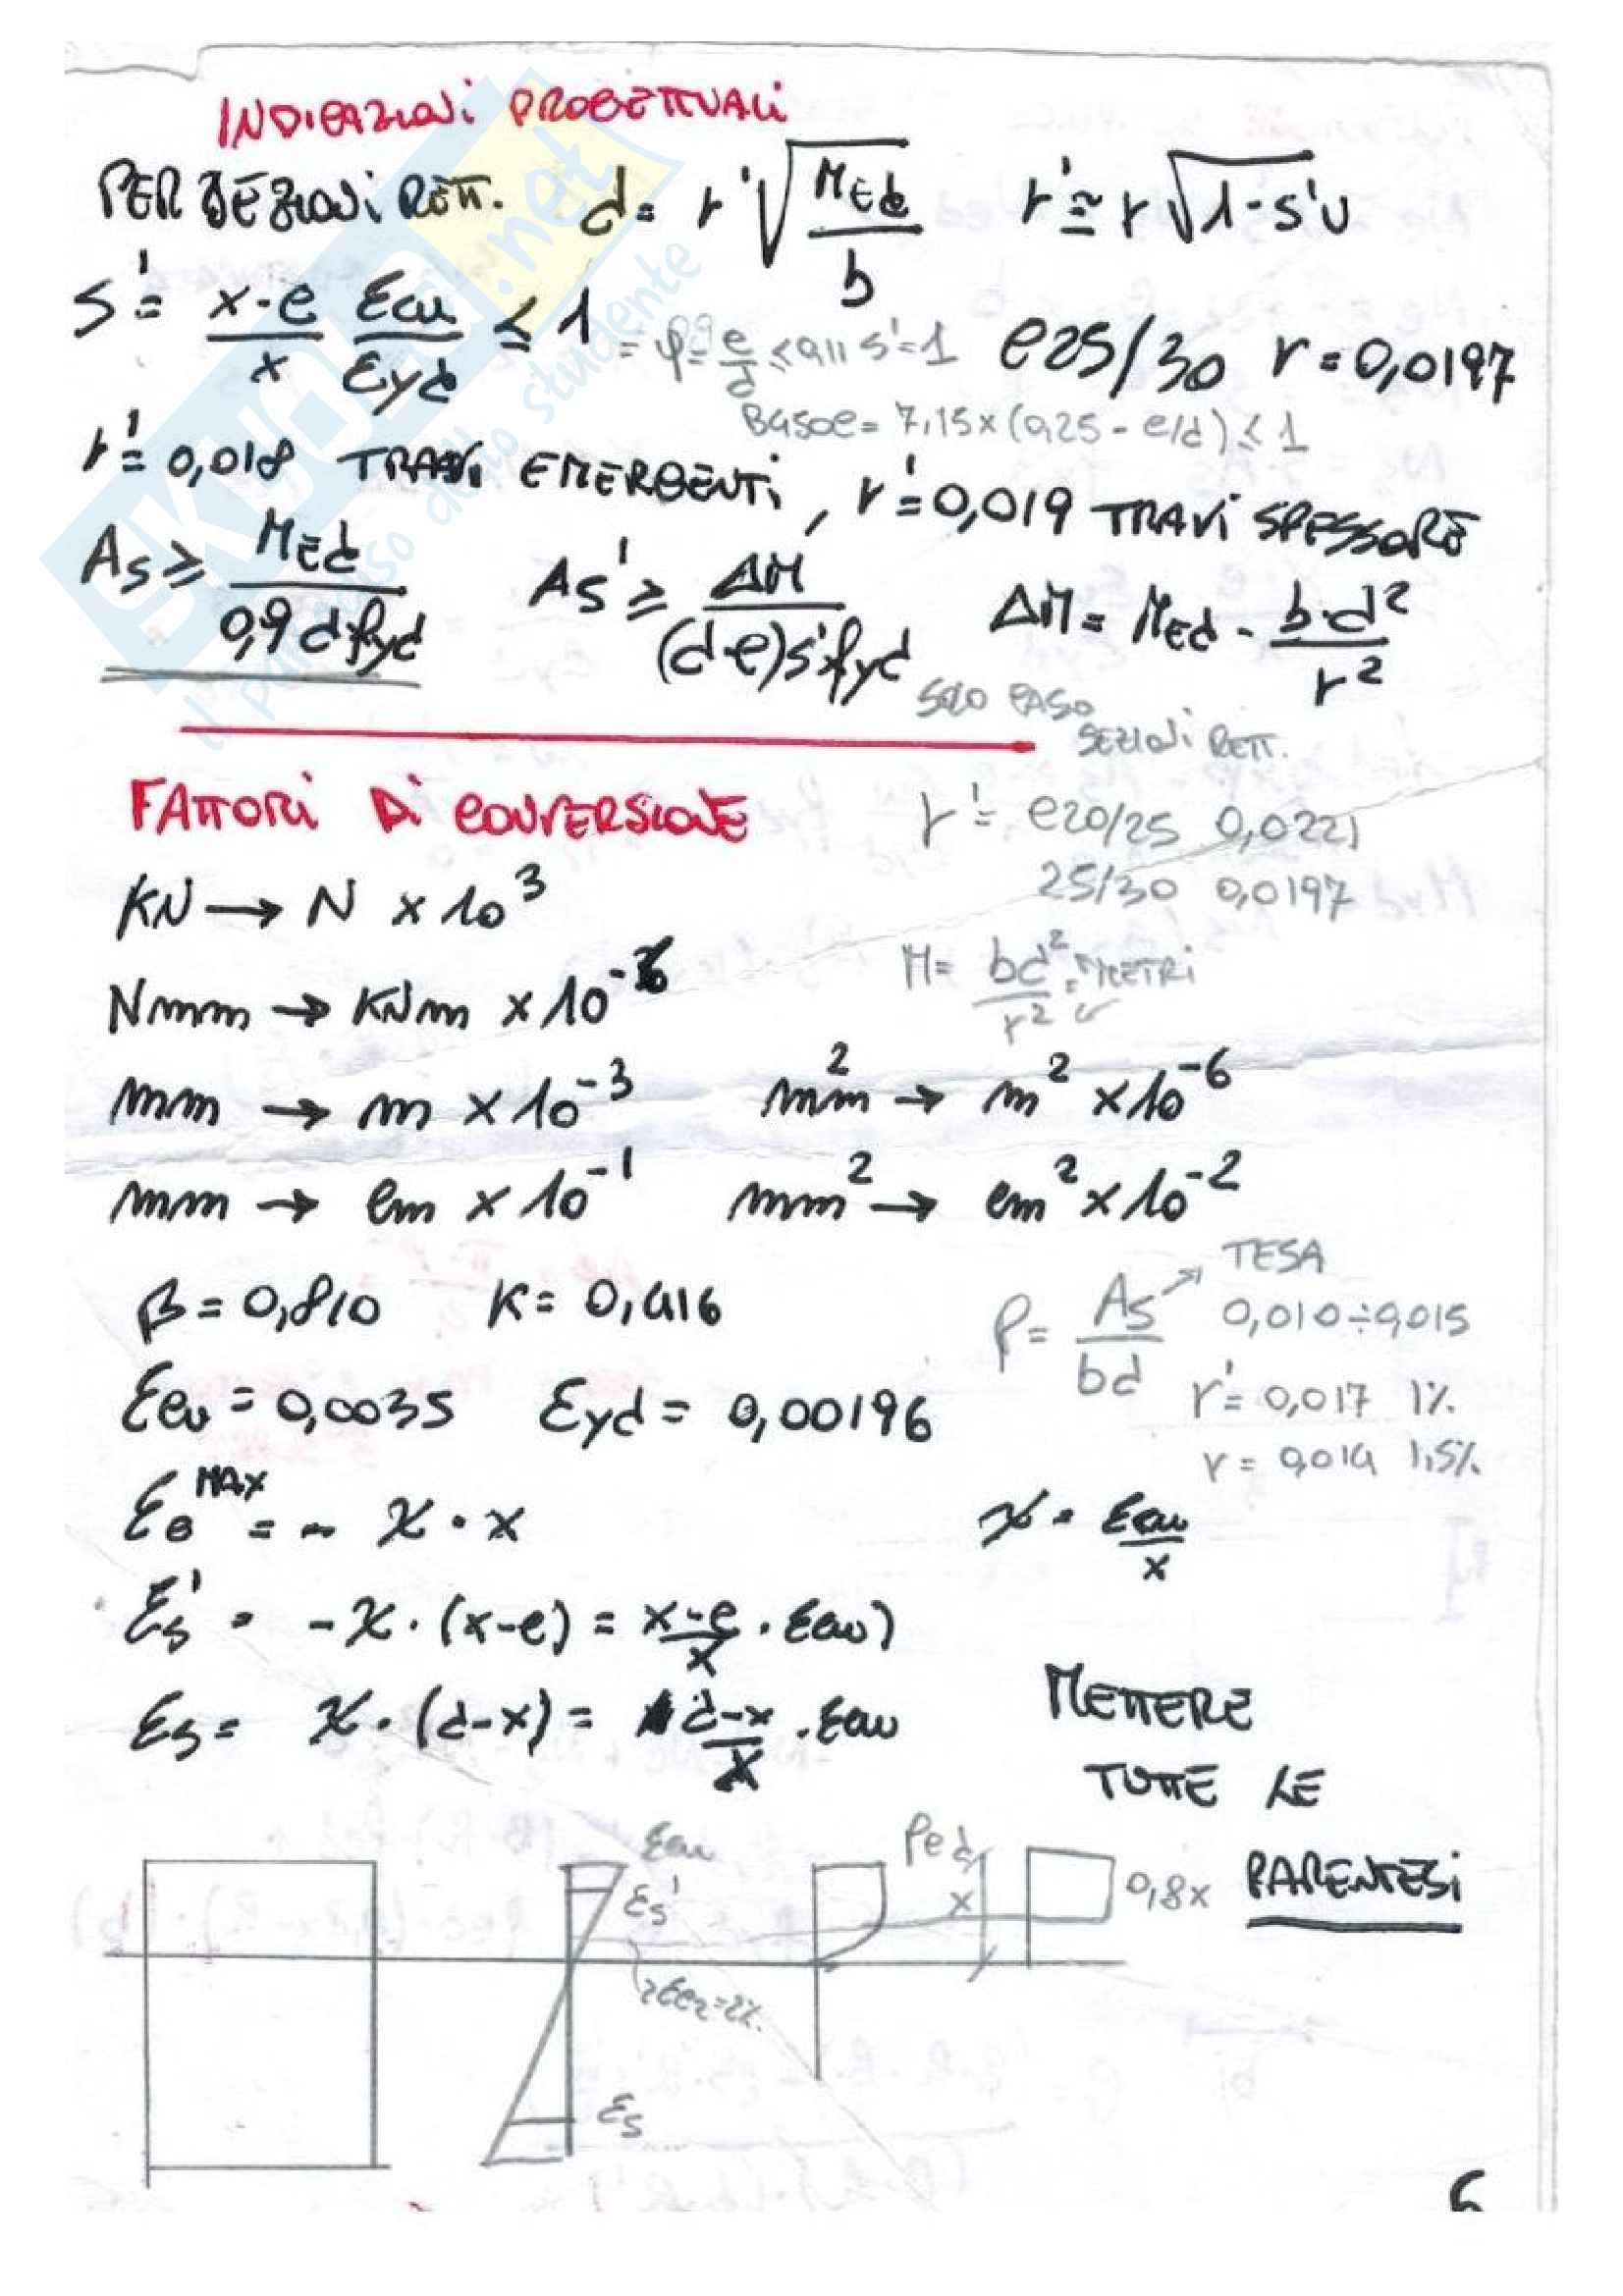 INDICAZIONI PROGETTUALI
PER SEZIONI RETT. d = r' √(MEd / b) r' ≃ r √(1-s'u)
s' = (x-c)/x εcu/εyd ≤ 1 = φ = c/d ≤ 0,11 s'=1 C25/30 r = 0,0197
= 7,15 x (0,25 - c/d) ≤ 1
r' = 0,018 TRAVI EMERGENTI, r' = 0,019 TRAVI SPESSORE
As ≥ MEd / (0,9 d fyd) As' ≥ ΔM / ((d-c) s' fyd) ΔM = MEd - b·d² / r²
SOLO CASO
SEZIONI RETT.
FATTORI DI CONVERSIONE
r' = C20/25 0,0221
25/30 0,0197
KN → N x 10³
M = bd² / r² METRI
Nmm → KNm x 10⁻⁶
mm → m x 10⁻³ mm² → m² x 10⁻⁶
mm → cm x 10⁻¹ mm² → cm² x 10⁻²
TESA
β = 0,810 K = 0,416 ρ = As / bd 0,010 ÷ 0,015
r' = 0,017 1%
εcu = 0,0035 εyd = 0,00196
r = 0,014 1,5%
εc MAX = - χ · x χ = εcu / x
εs' = -χ · (x-c) = (x-c)/x · εcu)
εs = χ · (d-x) = (d-x)/x · εcu
METTERE
TUTTE LE
PARENTESI
εcu
εs'
εc2=2%.
εs
x
0,8x
6